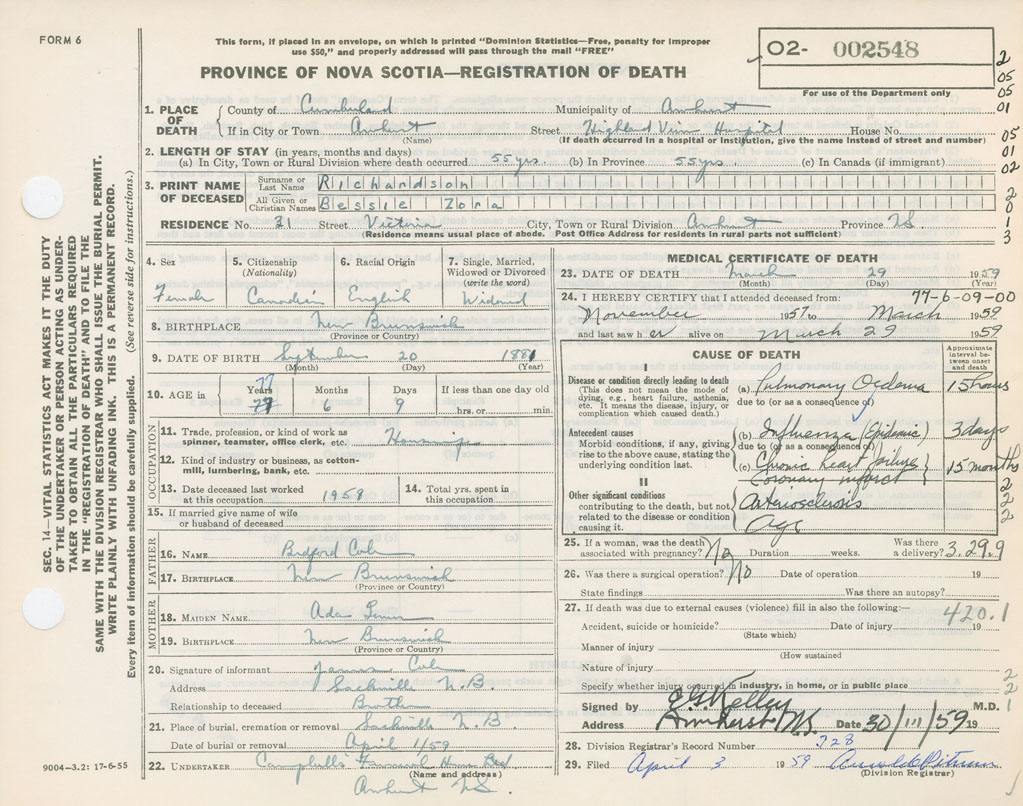 FORM 6
This form, if placed in an envelope, on which is printed "Dominion Statistics—Free, penalty for improper
use $50," and properly addressed will pass through the mail "FREE"
PROVINCE OF NOVA SCOTIA—REGISTRATION OF DEATH
O2- 002548
For use of the Department only
2
05
05
01
05
01
02
2
0
1
3
SEC. 14—VITAL STATISTICS ACT MAKES IT THE DUTY
OF THE UNDERTAKER OR PERSON ACTING AS UNDER-
TAKER TO OBTAIN ALL THE PARTICULARS REQUIRED
IN THE "REGISTRATION OF DEATH" AND TO FILE THE
SAME WITH THE DIVISION REGISTRAR WHO SHALL ISSUE THE BURIAL PERMIT.
WRITE PLAINLY WITH UNFADING INK. THIS IS A PERMANENT RECORD.
Every item of information should be carefully supplied. (See reverse side for instructions.)
1. PLACE OF DEATH County of Cumberland Municipality of Amherst
If in City or Town Amherst Street Highland View Hospital House No.
(Name) (If death occurred in a hospital or institution, give the name instead of street and number)
2. LENGTH OF STAY (in years, months and days)
(a) In City, Town or Rural Division where death occurred 55 yrs. (b) In Province 55 yrs. (c) In Canada (if immigrant)
3. PRINT NAME OF DECEASED Surname or Last Name Richardson
All Given or Christian Names Bessie Zora
RESIDENCE No. 31 Street Victoria City, Town or Rural Division Amherst Province N.S.
(Residence means usual place of abode. Post Office Address for residents in rural parts not sufficient)
4. Sex 5. Citizenship (Nationality) 6. Racial Origin 7. Single, Married, Widowed or Divorced (write the word)
Female Canadian English Widowed
8. BIRTHPLACE New Brunswick
(Province or Country)
9. DATE OF BIRTH September 20 1881
(Month) (Day) (Year)
10. AGE in Years Months Days If less than one day old
77 6 9 hrs. or min.
OCCUPATION
11. Trade, profession, or kind of work as spinner, teamster, office clerk, etc. Housewife
12. Kind of industry or business, as cotton-mill, lumbering, bank, etc.
13. Date deceased last worked at this occupation 1958 14. Total yrs. spent in this occupation
15. If married give name of wife or husband of deceased
FATHER
16. NAME Bedford Cole
17. BIRTHPLACE New Brunswick
(Province or Country)
MOTHER
18. MAIDEN NAME Ada
19. BIRTHPLACE New Brunswick
(Province or Country)
20. Signature of informant James Cole
Address Sackville N.B.
Relationship to deceased Brother
21. Place of burial, cremation or removal Sackville N.B
Date of burial or removal April 1/59
22. UNDERTAKER Campbell's Funeral Home Ltd
(Name and address)
Amherst N.S.
9004—3.2: 17-6-55
MEDICAL CERTIFICATE OF DEATH
23. DATE OF DEATH March 29 1959
(Month) (Day) (Year)
77-6-09-00
24. I HEREBY CERTIFY that I attended deceased from:
November 1957 to March 1959
and last saw her alive on March 29 1959
CAUSE OF DEATH
Approximate interval between onset and death
I
Disease or condition directly leading to death
(This does not mean the mode of dying, e.g., heart failure, asthenia, etc. It means the disease, injury, or complication which caused death.)
(a) Pulmonary Oedema 15 hours
due to (or as a consequence of)
Antecedent causes
Morbid conditions, if any, giving rise to the above cause, stating the underlying condition last.
(b) Influenza (Epidemic) 3 days
due to (or as a consequence of)
(c) Chronic heart failure 15 months
Coronary infarct
II
Other significant conditions contributing to the death, but not related to the disease or condition causing it.
Arteriosclerosis
Age
2
2
2
25. If a woman, was the death associated with pregnancy? No Duration weeks. Was there a delivery? 3.29.9
26. Was there a surgical operation? No Date of operation 19
State findings Was there an autopsy?
27. If death was due to external causes (violence) fill in also the following:—
420.1
Accident, suicide or homicide? Date of injury 19
(State which)
Manner of injury
(How sustained
Nature of injury
Specify whether injury occurred in industry, in home, or in public place
2
2
1
Signed by Kelley M.D.
Address Amherst NS Date 30/III/59 19
28. Division Registrar's Record Number 728
29. Filed April 3 1959
(Division Registrar)